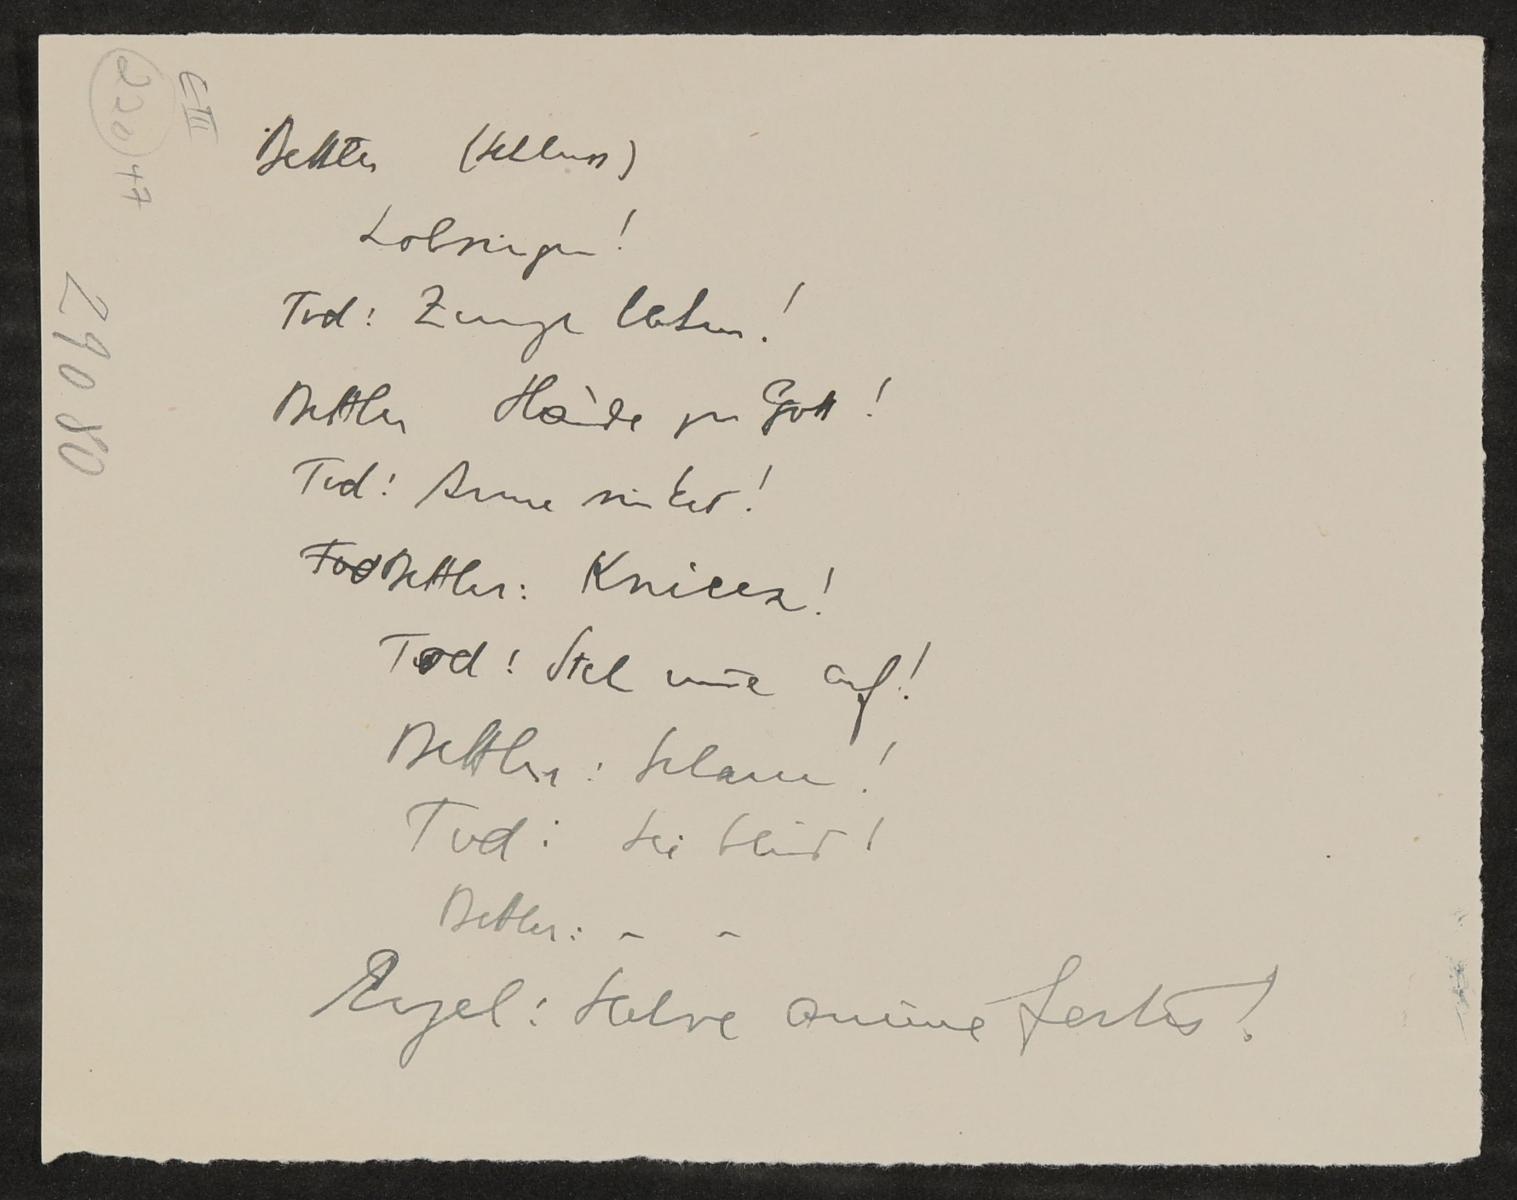 C III
220 47
29080
Bettler (Schluss)
Lobsingen!
Tod: Zunge !
Bettler Hände zu Gott!
Tod: Arme sinket!
Tod Bettler: Knieen!
Tod: Steh nie auf!
Bettler: Schaun!
Tod: Sei blind!
Bettler: – –
Engel: Salve anime fortis!